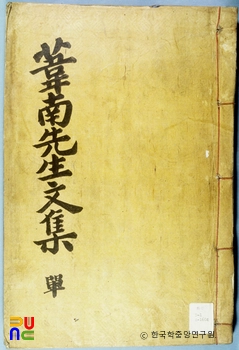 葦南先生文集
單
PUNC
© 한국학중앙연구원